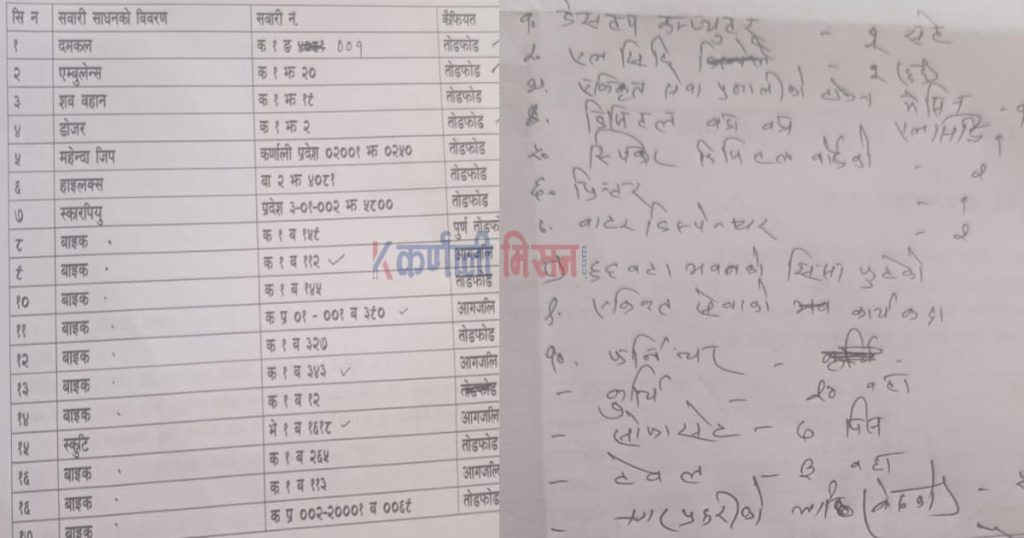 सि न सवारी साधनको विवरण सवारी नं. कैफियत
१ दमकल क १ ङ ००१ तोडफोड
२ एम्बुलेन्स क १ झ २० तोडफोड
३ शव वहान क १ झ १९ तोडफोड
४ डोजर क १ झ २ तोडफोड
५ महेन्द्रा जिप कर्णाली प्रदेश ०२००१ झ ०२५० तोडफोड
६ हाइलक्स बा २ झ ४०८१ तोडफोड
७ स्कारपियु प्रदेश ३-०१-००२ झ ५८०० तोडफोड
८ बाइक क १ व १५९ पुर्ण तोडफो
९ बाइक क १ व ११२ आगजलि
१० बाइक क १ व १४५ तोडफोड
११ बाइक क प्र ०१ - ००१ व ३८० आगजलि
१२ बाइक क १ व ३२७ तोडफोड
१३ बाइक क १ व ३४३ आगजलि
१४ बाइक क १ व १२ तोडफोड
१५ स्कुटि भे १ व १६१८ आगजलि
१६ बाइक क १ व २६५ तोडफोड
१६ बाइक क १ व ११३ आगजलि
१७ बाइक क प्र ००२-२०००१ व ००६९ तोडफोड
कर्णाली मिसन.com
१. डेसटप कम्प्युटर - २ सेट
२. एल सिडि
३. एकिकृत सेवा प्रणालीको टोकन मेसिन
४. डिजिटल वडा पत्र एलसिडि १
५. स्पिकर डिजिटल बोर्डको - २
६. प्रिन्टर - १
७. वाटर डिस्पेन्सर - २
भवनको सिसा फुटेको
९. एकिकृत सेवाको कार्यकक्ष
१०. फर्निचर -
- कुर्चि - २० वटा
- सोफासेट - ७ पिस
- टेवल - ३ वटा